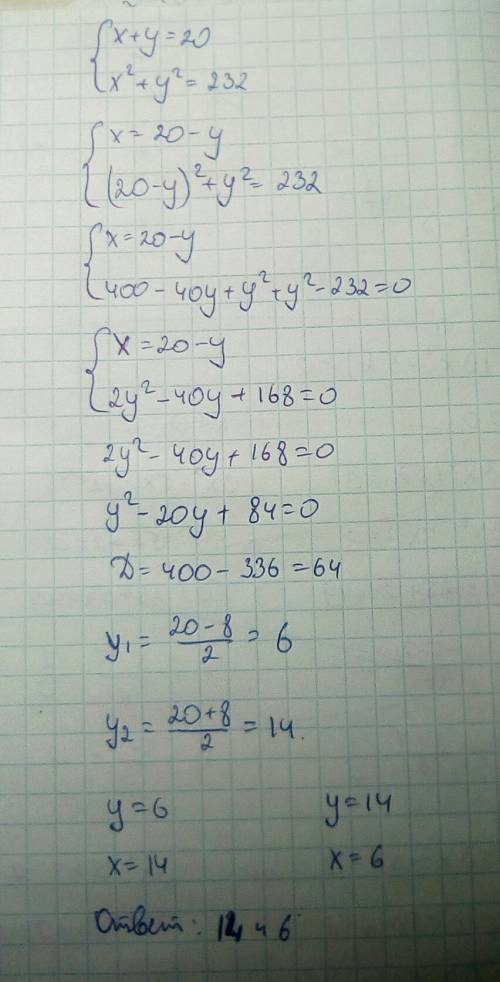 x+y=20
x²+y²=232
x=20-y
(20-y)²+y²=232
x=20-y
400-40y+y²+y²-232=0
x=20-y
2y²-40y+168=0
2y²-40y+168=0
y²-20y+84=0
D=400-336=64
y₁=(20-8)/2=6
y₂=(20+8)/2=14.
y=6 y=14
x=14 x=6
Ответ: 14 и 6